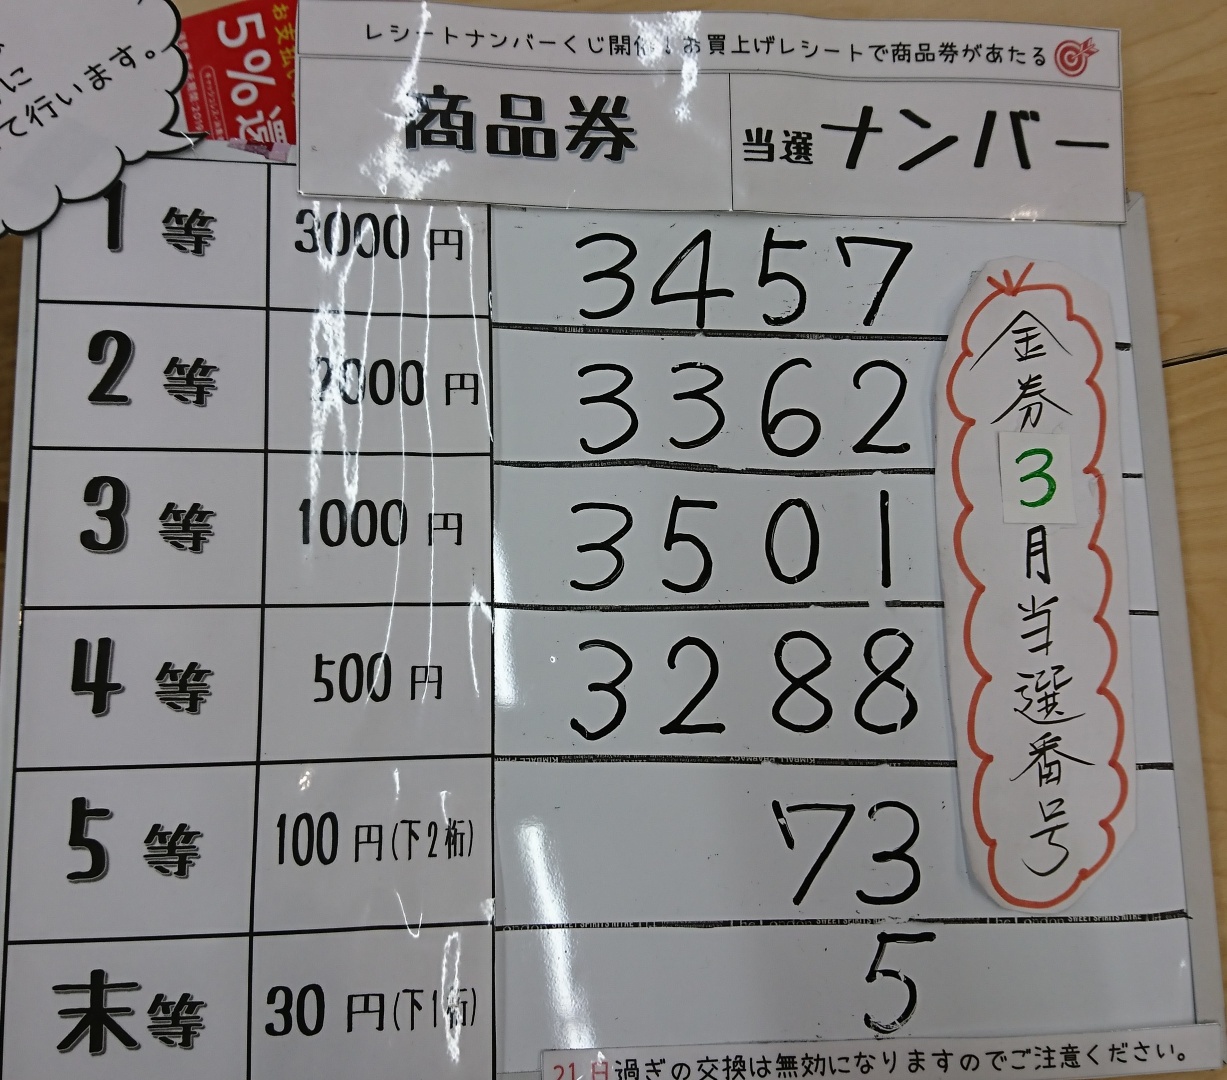 に
て行います。
5%還
レシートナンバーくじ開催！お買上げレシートで商品券があたる
商品券 当選ナンバー
1等 3000円 3457
2等 2000円 3362
3等 1000円 3501
4等 500円 3288
5等 100円(下2桁) 73
末等 30円(下1桁) 5
金券3月当選番号
21日過ぎの交換は無効になりますのでご注意ください。